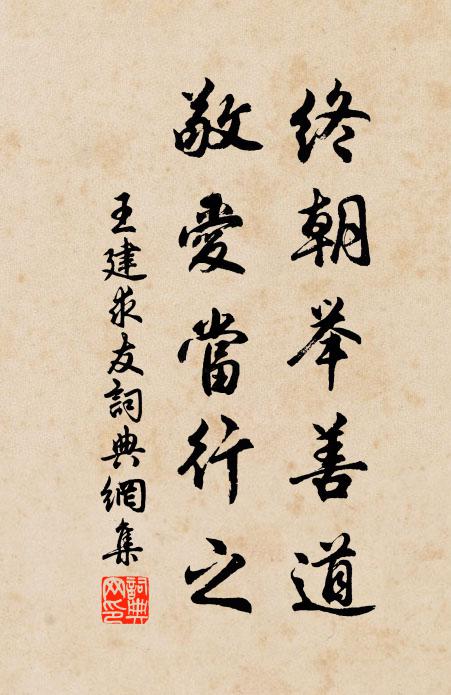 终朝举善道
敬愛當行之
王建求友詞典網集
詞典网印